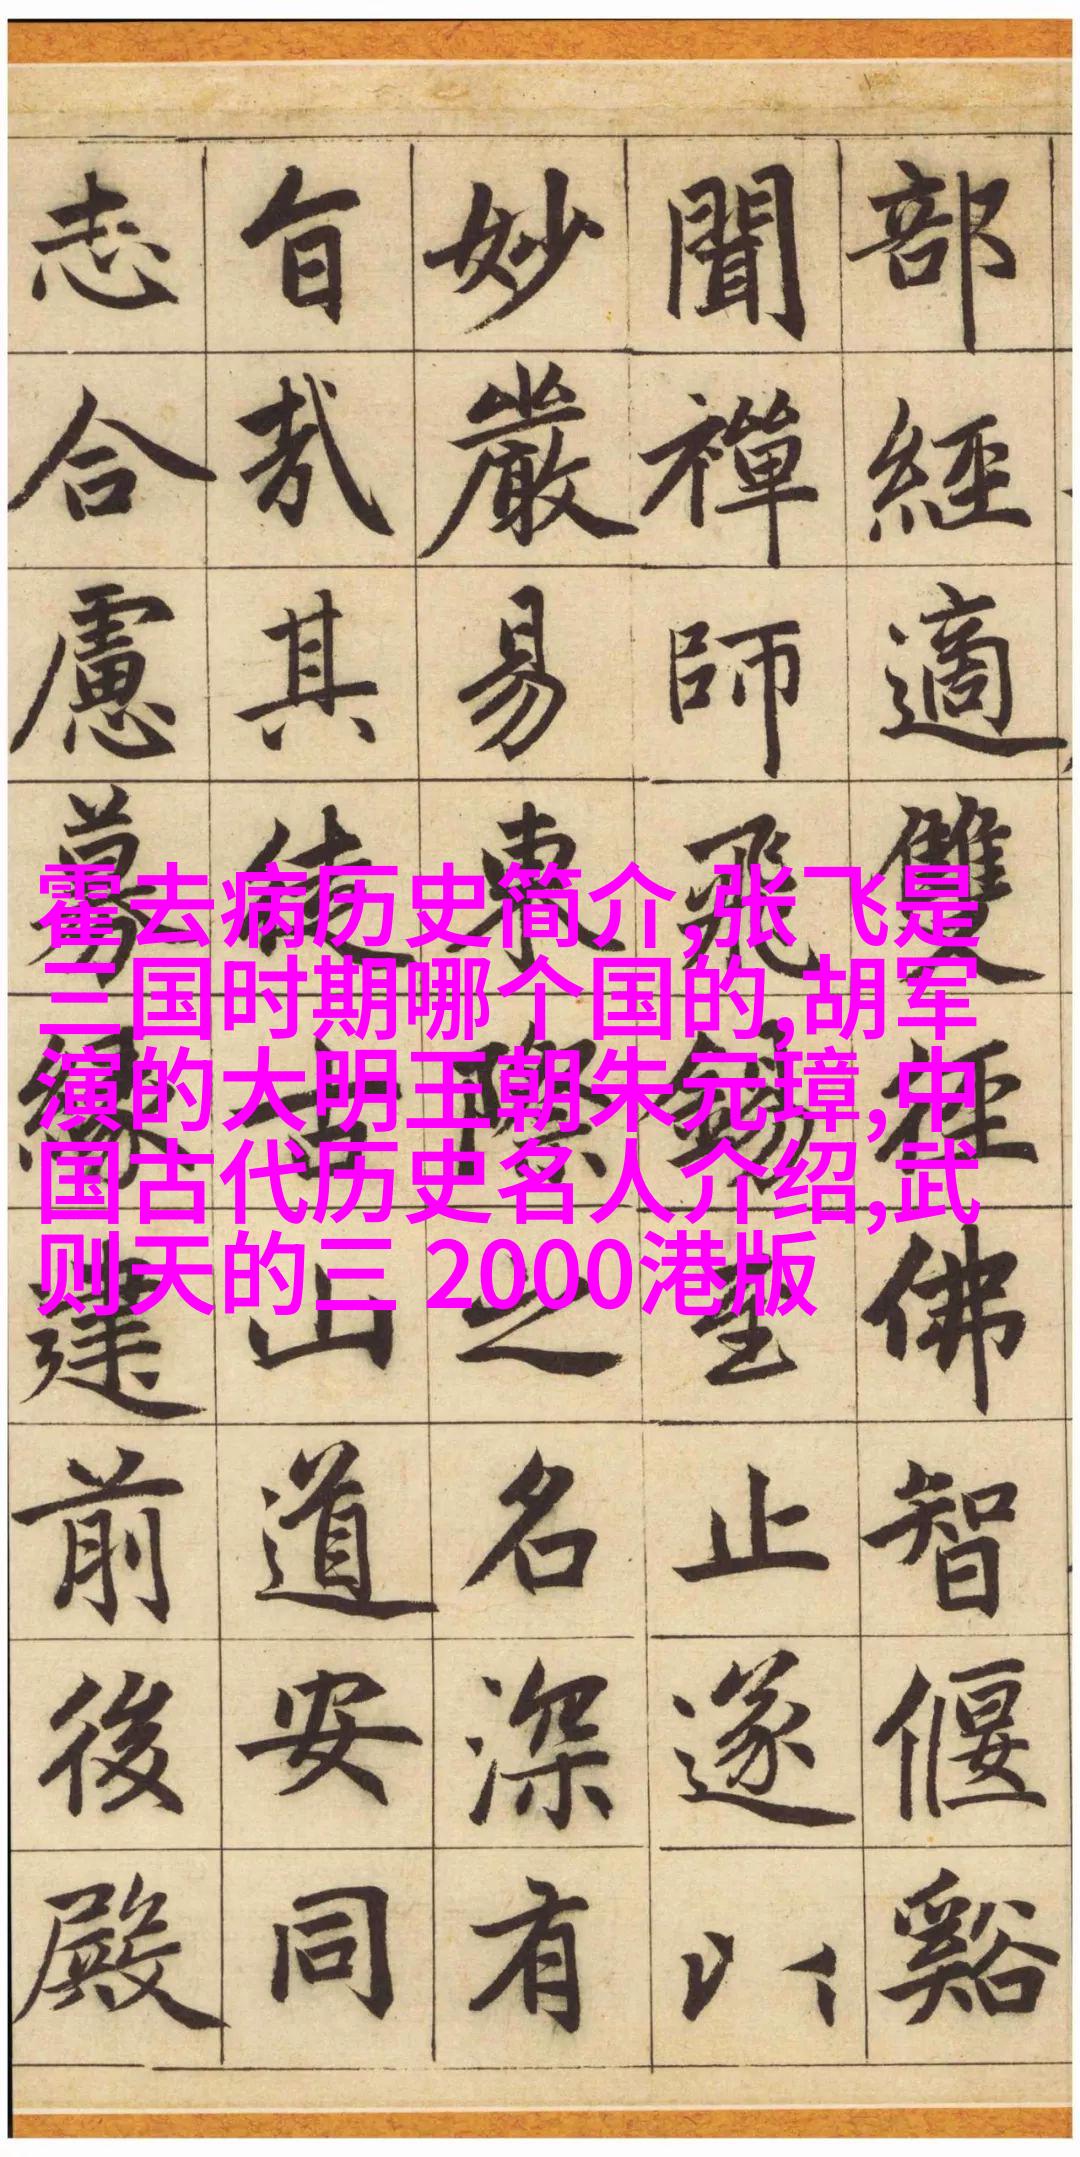 部經適雙徑佛智偃谿
聞禪師飛錫至止遂以
妙嚴易東際之名深有
旨哉其徒古山道安同
志合慮募緣建前後殿
霍去病历史简介,张飞是
三国时期哪个国的,胡军
演的大明王朝朱元璋,中
国古代历史名人介绍,武
则天的三 2000港版